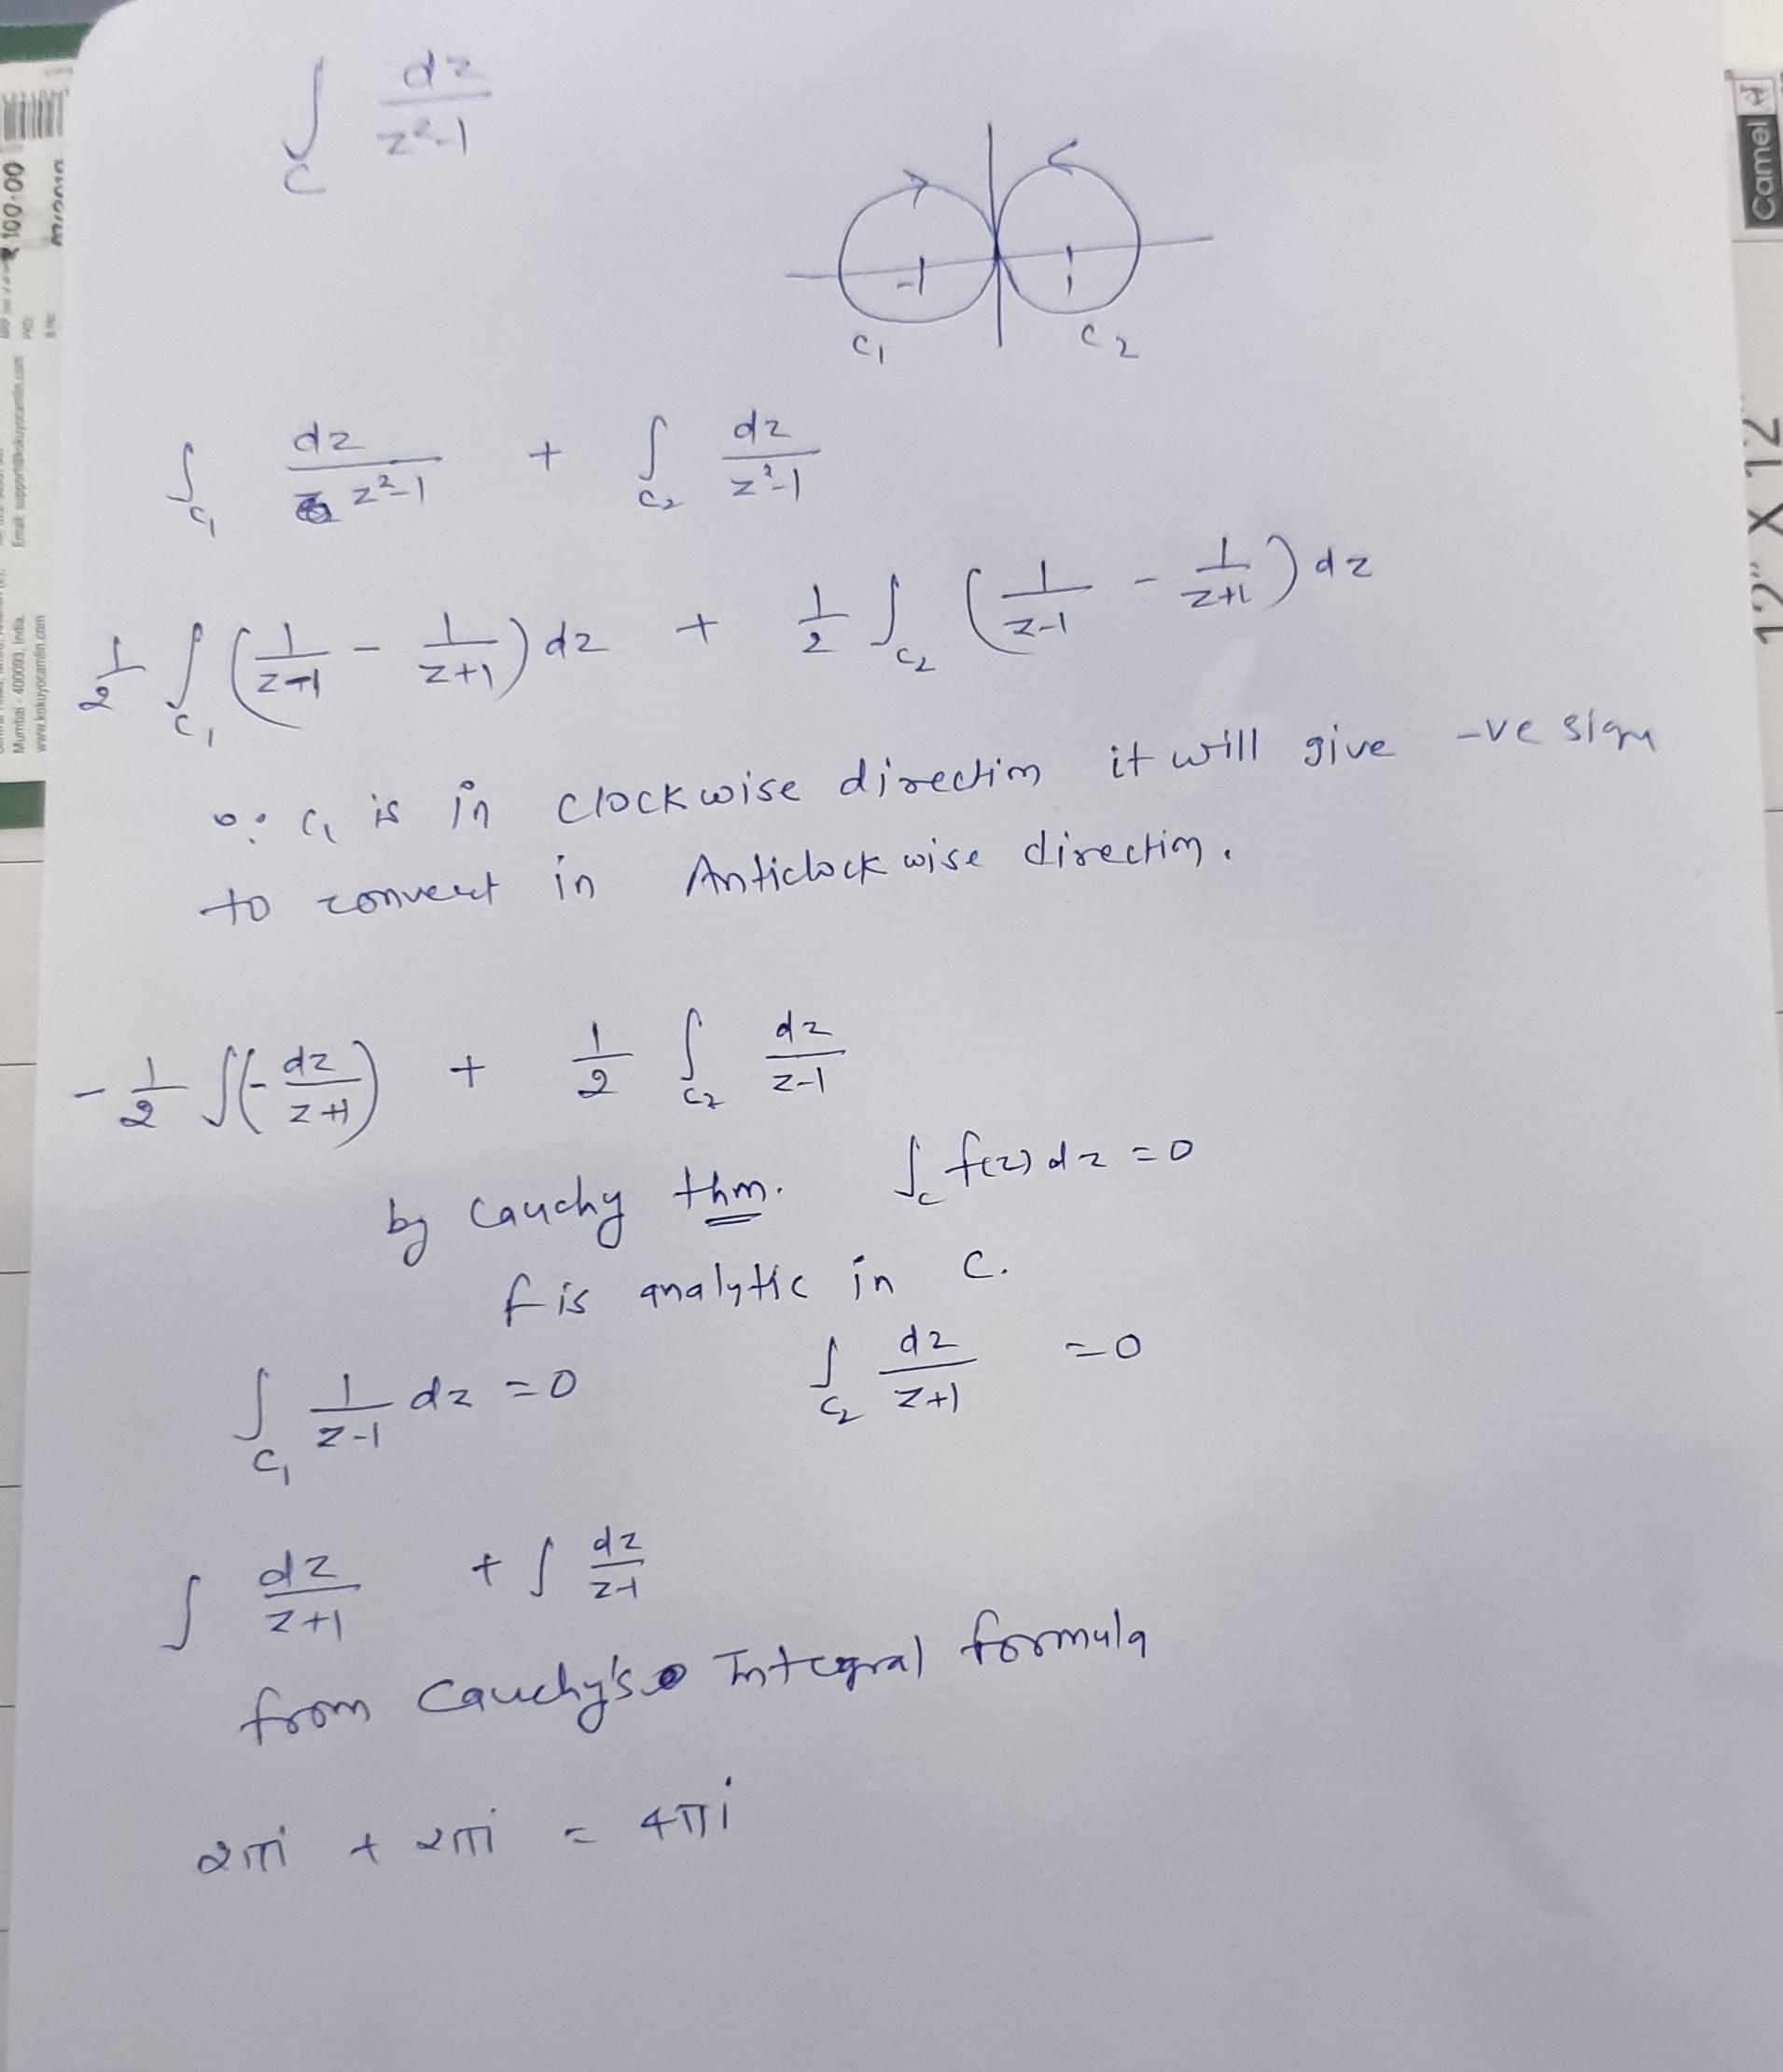 ∫_C dz/(z²-1)
-1 1
C₁ C₂
∫_C₁ dz/(z²-1) + ∫_C₂ dz/(z²-1)
1/2 ∫_C₁ (1/(z-1) - 1/(z+1)) dz + 1/2 ∫_C₂ (1/(z-1) - 1/(z+1)) dz
∵ C₁ is in clockwise direction it will give -ve sign
to convert in Anticlockwise direction.
-1/2 ∫(-dz/(z+1)) + 1/2 ∫_C₂ dz/(z-1)
by Cauchy thm. ∫_C f(z) dz = 0
f is analytic in C.
∫_C₁ 1/(z-1) dz = 0 ∫_C₂ dz/(z+1) = 0
∫ dz/(z+1) + ∫ dz/(z-1)
from Cauchy's Integral formula
2πi + 2πi = 4πi
₹ 100.00
Email: support@kokuyocamlin.com
Mumbai - 400093, India.
www.kokuyocamlin.com
Camel
12" X 12